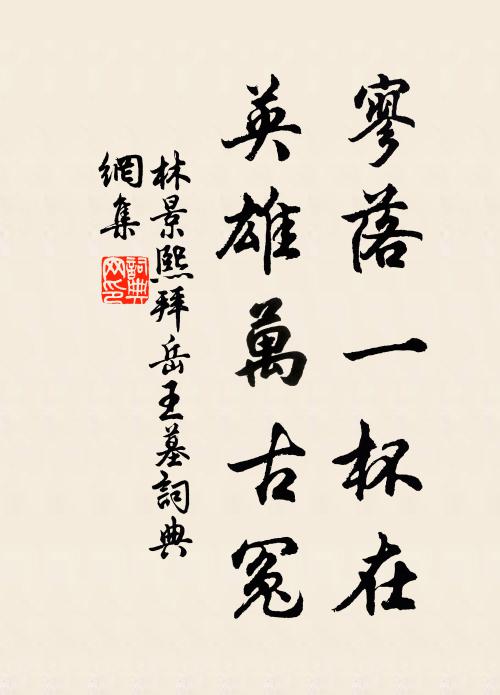 寥落一杯在
英雄萬古冤
林景熙拜岳王墓詞典
網集
詞典
网印